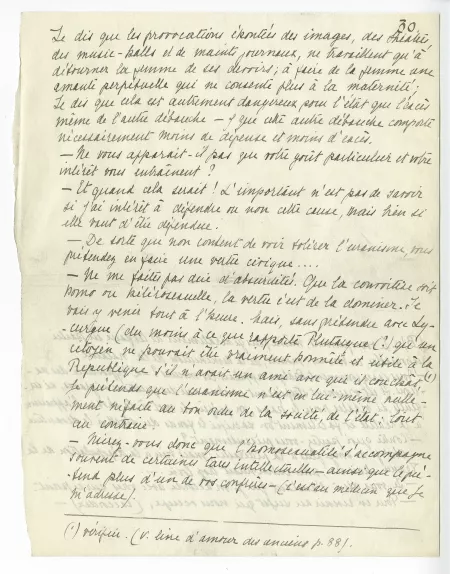 30
Je dis que les provocations éhontées des images, des théâtres
des music-halls et de maints journaux, ne travaillent qu'à
détourner la femme de ses devoirs ; à faire de la femme une
amante perpétuelle qui ne consente plus à la maternité ;
Je dis que cela est autrement dangereux pour l'état que l'excès
même de l'autre débauche — & que cette autre débauche comporte
nécessairement moins de dépense et moins d'excès.
— Ne vous apparaît-il pas que votre goût particulier et votre
intérêt vous entraînent ?
— Et quand cela serait ! L'important n'est pas de savoir
si j'ai intérêt à défendre ou non cette cause, mais bien si
elle vaut d'être défendue.
— De sorte que non content de voir tolérer l'uranisme, vous
prétendez en faire une vertu civique....
— Ne me faites pas dire d'absurdités. Que la convoitise soit
homo ou hétérosexuelle, la vertu c'est de la dominer. Je
vais y venir tout à l'heure. Mais, sans prétendre avec Ly-
-curgue (du moins à ce que rapporte Plutarque (¹) qu'un
citoyen ne pouvait être vraiment honnête et utile à la
République s'il n'avait un ami avec qui il couchât, (¹)
je prétends que l'uranisme n'est en lui-même nulle-
ment néfaste au bon ordre de la société, de l'état ; tout
au contraire.
— Nierez-vous donc que l'homosexualité s'accompagne
souvent de certaines tares intellectuelles — ainsi que le pré-
-tend plus d'un de vos confrères — (c'est au médecin que je
m'adresse).
(¹) vérifier. (v. livre d'amour des anciens p. 88).